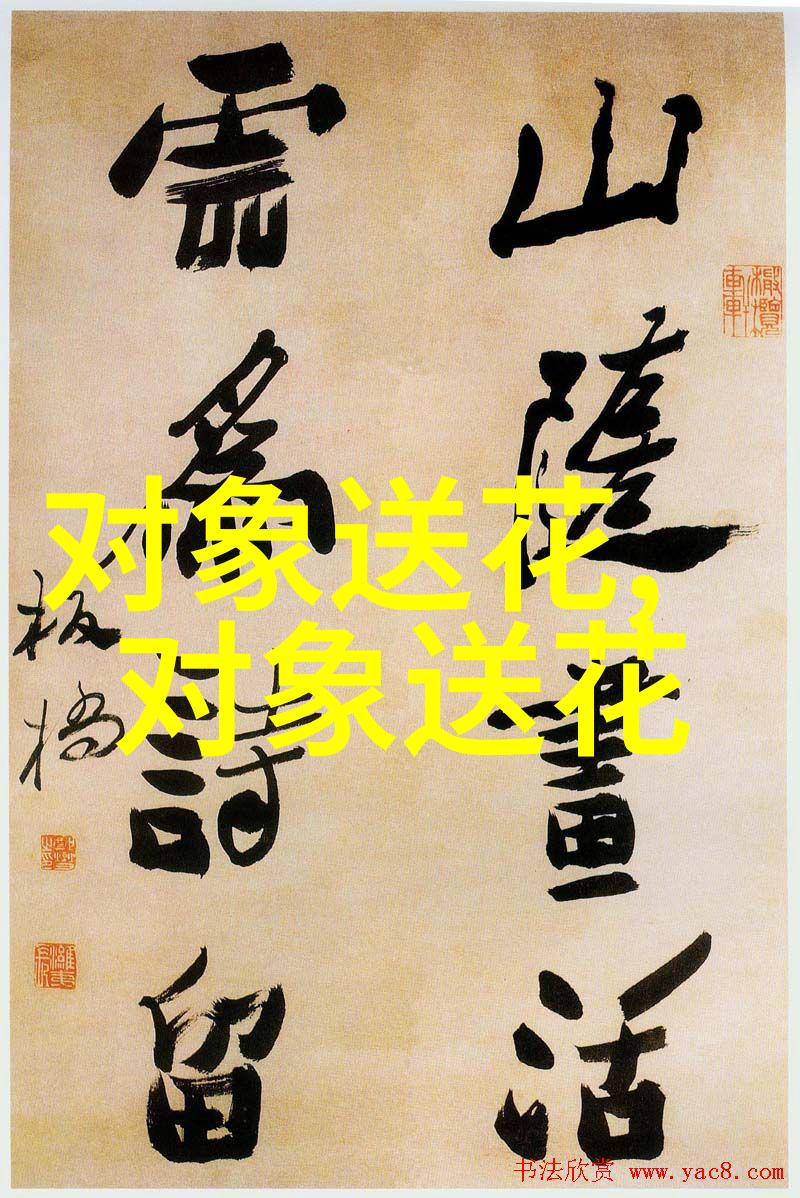 山隨畫活
雲為詩留
板橋
对象送花，
对象送花
书法欣赏 www.yac8.com